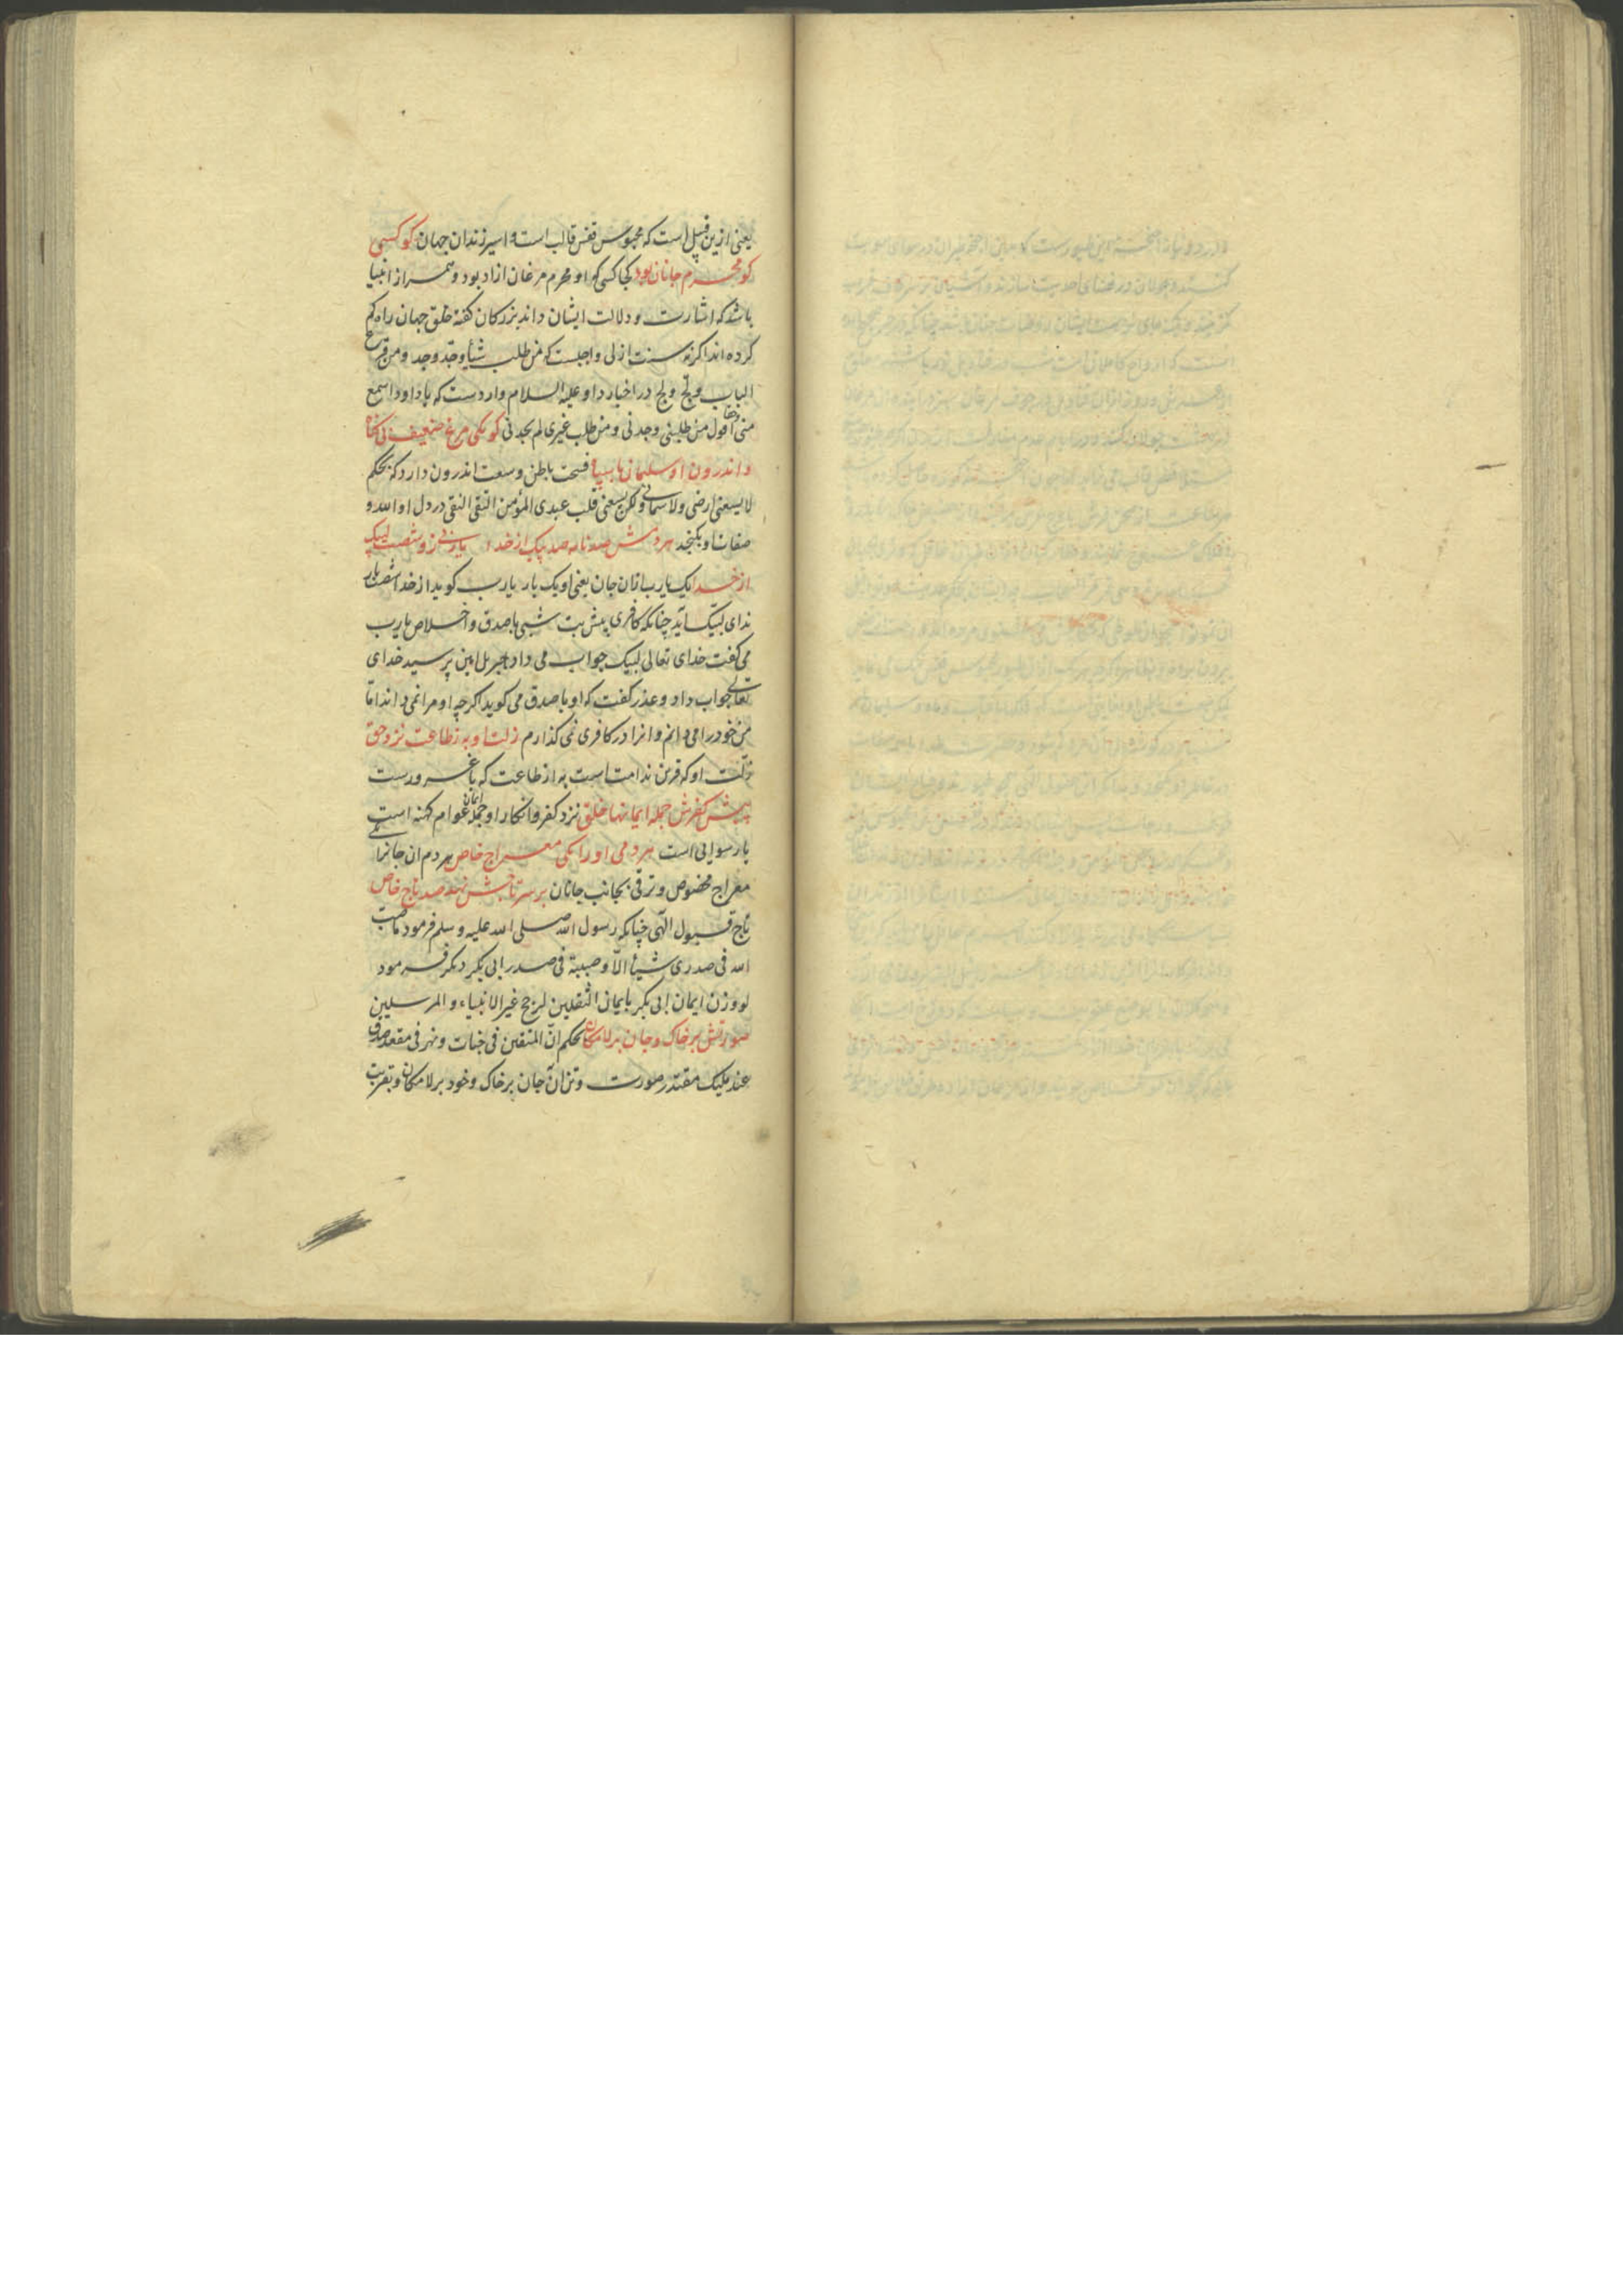 یعنی ازین قبیل است که محبوس قفس قالب است و اسیر زندان جهان کو کسی
کو محرم جانان بود کجا کسی که او محرم مرغان ازاد بود و همراز انبیا
باشد که اشارت و دلالت ایشان داند بزرکان کفته خلق جهان راه کم
کرده اند اکرنه سنت ازلی و اجلست که من طلب شیأ وجد وجد و من قرع
الباب ولج ولج در اخبار داود علیه السلام واردست که یا داود اسمع
منی حقا اقول من طلبنی وجدنی و من طلب غیری لم یجدنی کو یکی مرغ ضعیف بی کناه
و اندرون او سلیمان با سپاه فسحت باطن و سعت اندرون دارد که بحکم
لا یسعنی ارضی ولا سمائی ولکن یسعنی قلب عبدی المؤمن التقی النقی در دل او الله و
صفات او بکنجد هر دمش صد نامه صد پیک از خدا یاربی زو شصت لبیک
از خدا یک یارب ازان جان یعنی او یک بار یارب کوید از خدا شصت بار
ندای لبیک اید چنانکه کافری پیش بت شبی با صدق و اخلاص یارب
می کفت خدای تعالی لبیک جواب می داد جبریل امین پرسید خدای
تعالی جواب داد و عذر کفت که او با صدق می کوید اکرچه او مرا نمی داند اما
من خود را می دانم و انرا در کافری نمی کذارم زلت او به ز طاعت نزد حق
زلت او که قرین ندامت است به از طاعت که با غرورست
پیش کفرش جمله ایمانها خلق نزد کفر و انکار او جمله ایمان عوام کهنه است
یا رسوایی است هر دمی او را یکی معراج خاص هر دم ان جانرا
معراج مخصوص و ترقی بجانب جانان بر سر تاجش نهد صد تاج خاص
تاج قبول الهی چنانکه رسول الله صلی الله علیه و سلم فرمود ما صب
الله فی صدری شیأ الا و صببته فی صدر ابی بکر دیکر فرمود
لو وزن ایمان ابی بکر بایمان الثقلین لرجح غیر الانبیاء و المرسلین
صورتش بر خاک و جان بر لامکان بحکم ان المتقین فی جنات و نهر فی مقعد صدق
عند ملیک مقتدر صورت و تن ان جان بر خاک و خود بر لا مکان و بقربت